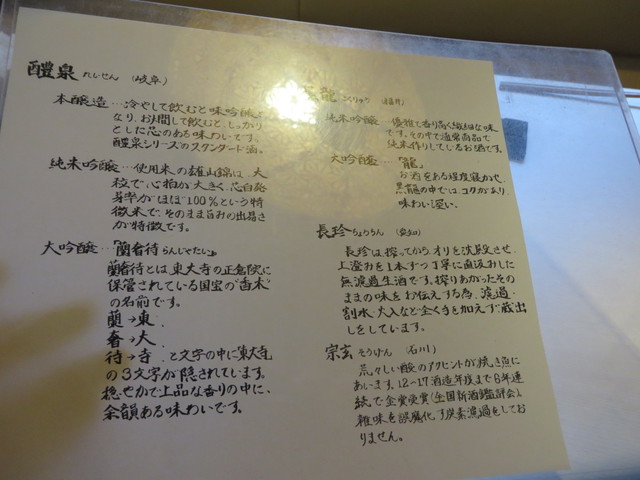 醴泉 れいせん (岐阜)
本醸造…冷やして飲むと味吟醸
なり、お燗して飲むと、しっかり
とした芯のある味わいです。
醴泉シリーズのスタンダード酒。
純米吟醸…使用米の雄山錦は、大
粒で心拍が大きく、芯白発
芽率がほぼ100%という特
徴米で、そのまま旨みの出易さ
が特徴です。
大吟醸…「蘭奢待 らんじゃたい」
蘭奢待とは東大寺の正倉院に
保管されている国宝の"香木"
の名前です。
蘭→東、
奢→大、
待→寺、と文字の中に"東大寺"
の3文字が隠されています。
穏やかで上品な香りの中に、
余韻ある味わいです。
龍 こくりゅう (福井)
純米吟醸…優雅で香り高く繊細な味
です。その中で通常商品で
純米作りしているお酒です。
大吟醸…「龍」
お酒をある程度寝かせ、
黒龍の中では、コクがあり、
味わい深い。
長珍 ちょうちん (愛知)
長珍は搾ってから、オリを沈殿させ、
上澄みを1本ずつ丁寧に直汲みした
無濾過生酒です。搾りあがったその
ままの味をお伝えする為、濾過・
割水・火入など全く手を加えず蔵出
しをしています。
宗玄 そうげん (石川)
荒々しい酸のアクセントが焼き魚に
あいます。12〜17酒造年度まで6年連
続で金賞受賞(全国新酒鑑評会)。
雑味を誤魔化す炭素濾過をしてお
りません。